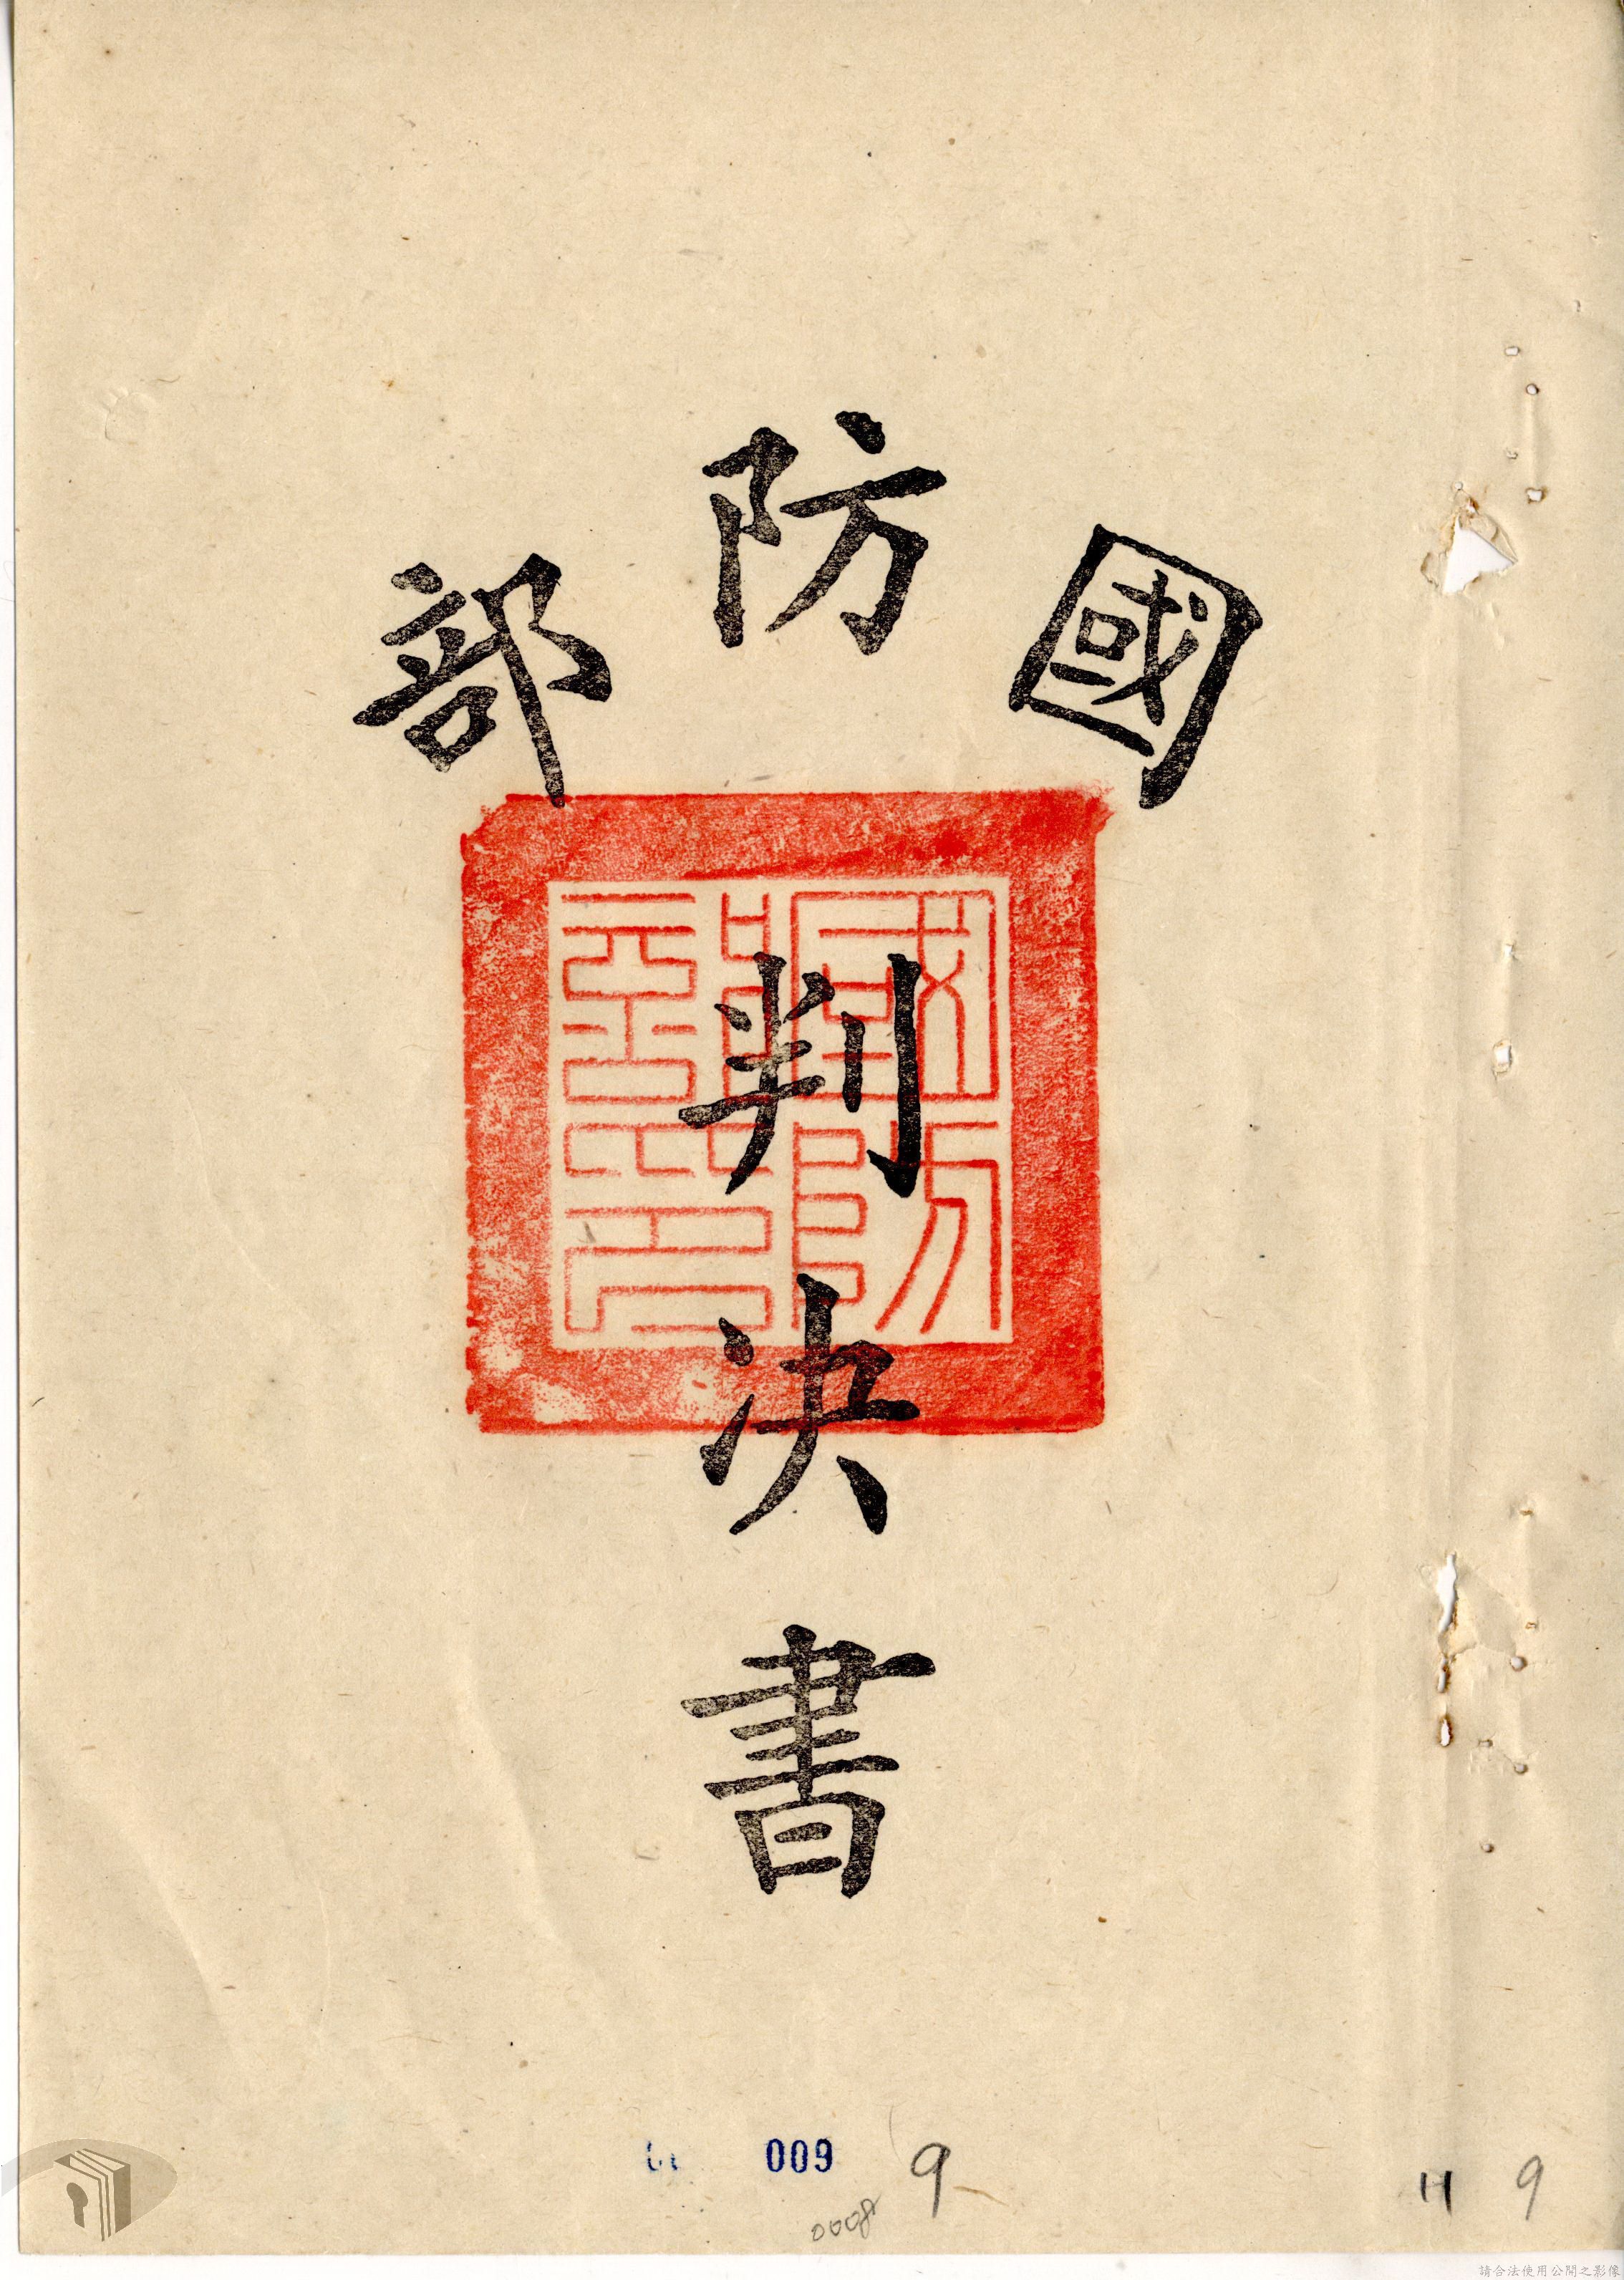 國防部
判決書
國防部印
009 9
0008
H 9
請合法使用公開之影像